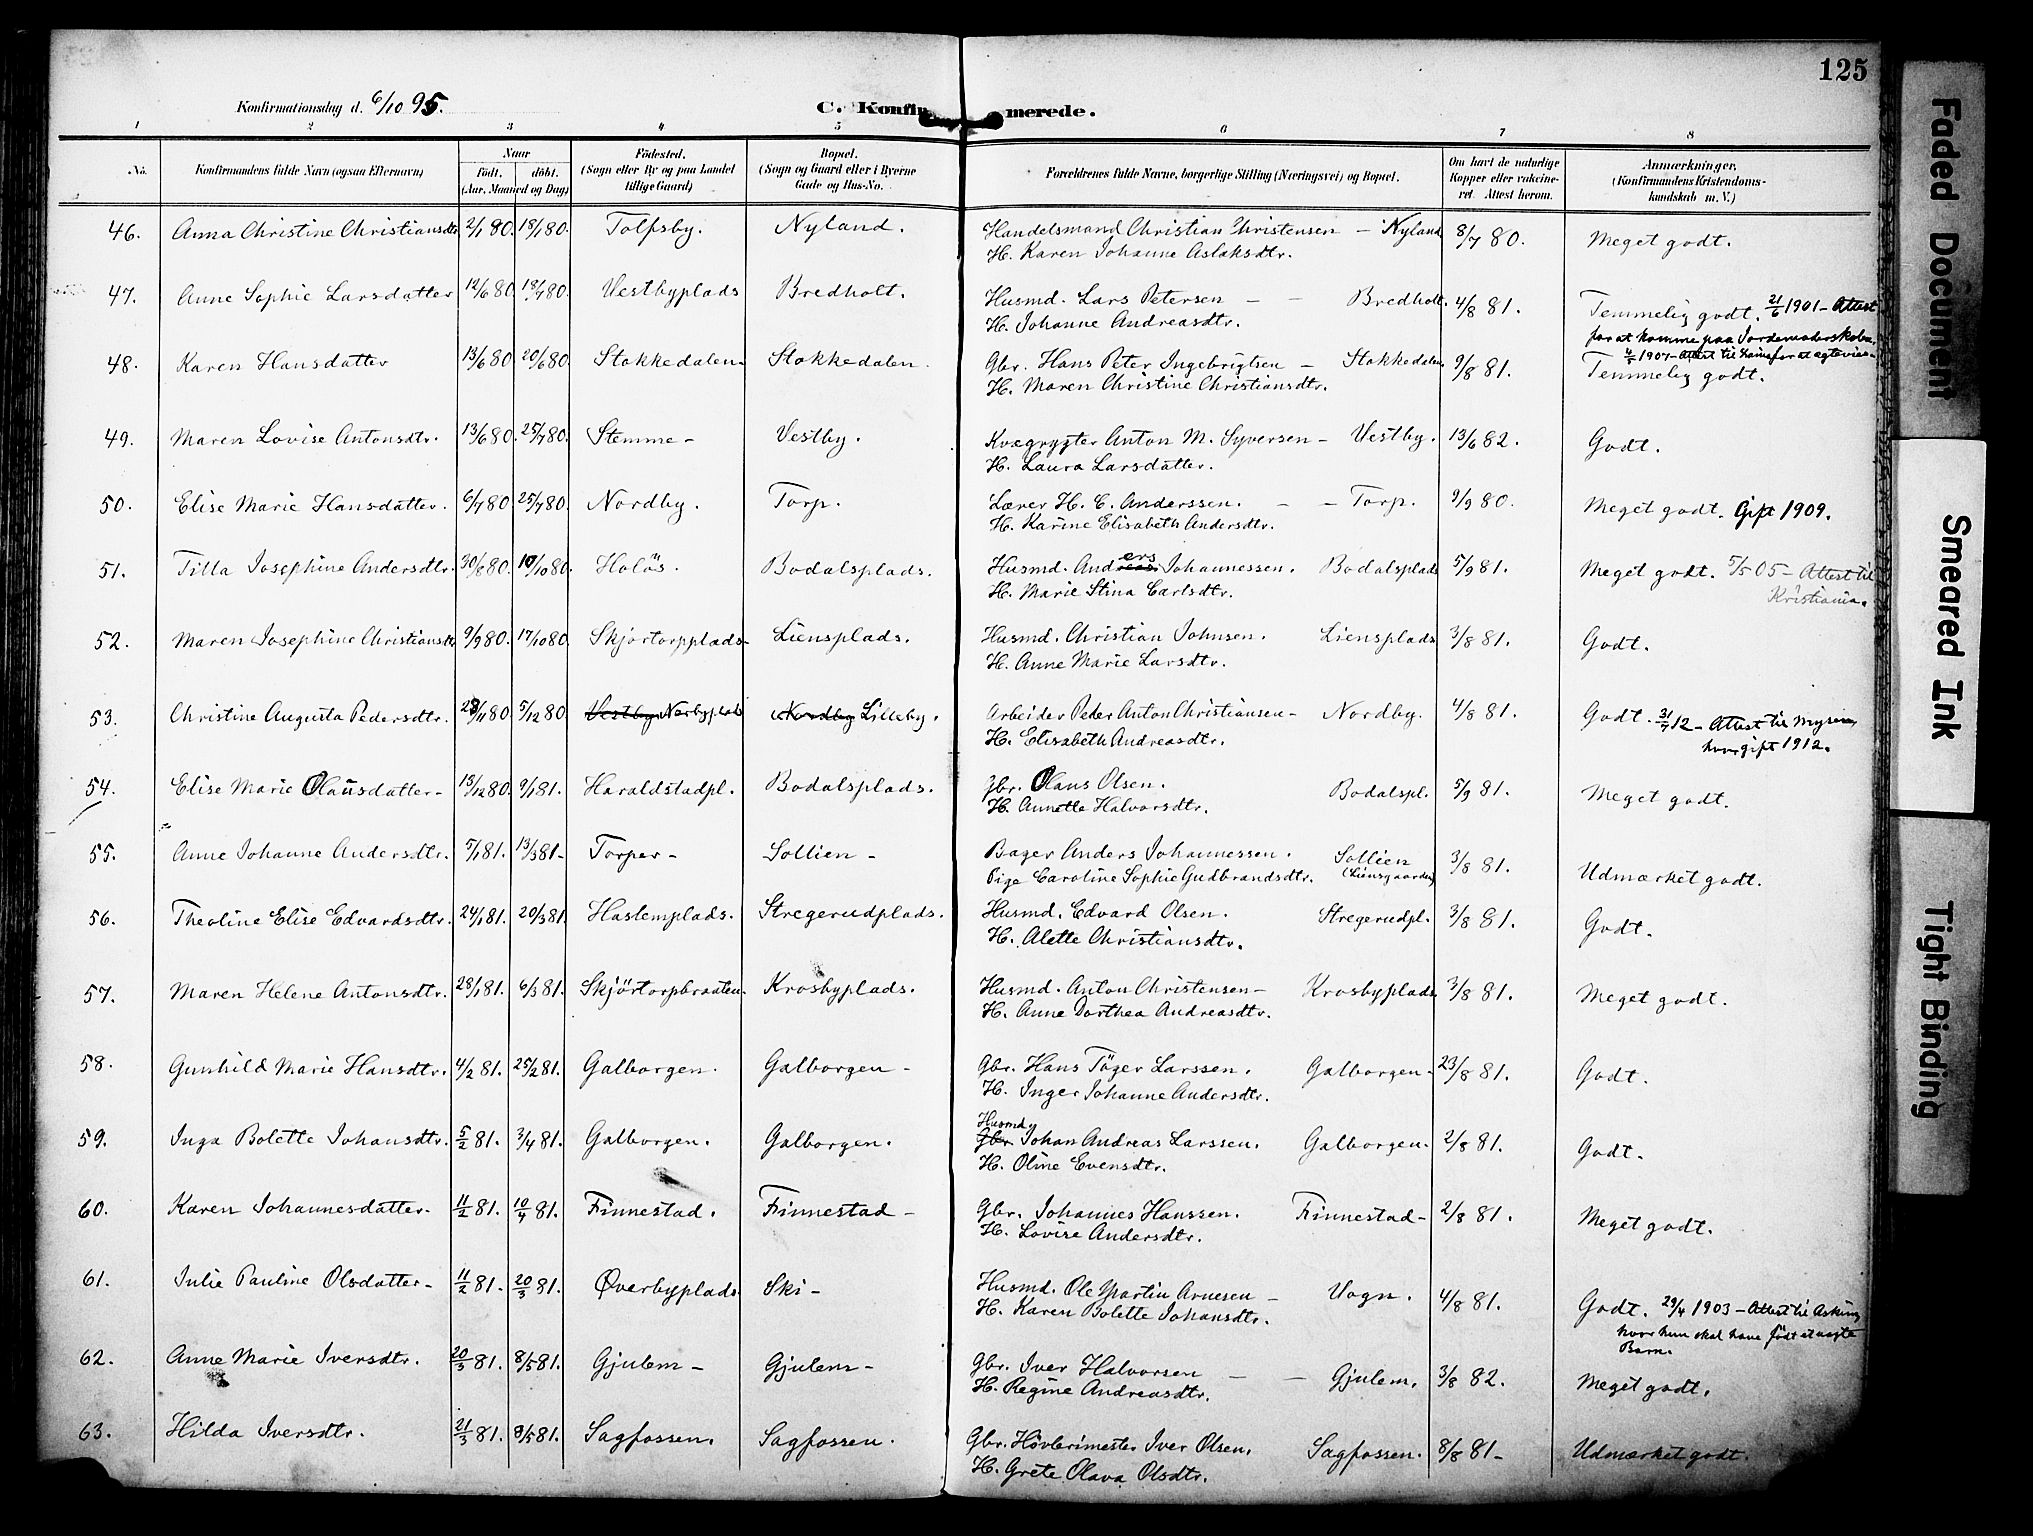 125
Konfirmationsdag d. 6/10 95.
C. Konfirmerede.
1 2 3 4 5 6 7 8
No. Konfirmandens fulde Navn (ogsaa Efternavn) Naar Födt. döbt. (Aar, Maaned og Dag) Födested. (Sogn eller By og paa Landet tillige Gaard) Bopæl. (Sogn og Gaard eller i Byerne Gade og Hus-No. Forældrenes fulde Navne, borgerlige Stilling (Næringsvei) og Bopæl. Om havt de naturlige Kopper eller vakcineret. Attest herom. Anmærkninger, (Konfirmandens Kristendomskundskab m. V.)
46. Anna Christine Christiansdtr 2/1 80. 18/1 80. Tolfsby. Nyland. Handelsmand Christian Christensen – Nyland 8/7 80. Meget godt.
H. Karen Johanne Aslaksdtr.
47. Anne Sophie Larsdatter 12/6 80. 18/7 80. Vestbyplads Bredholt. Husmd. Lars Petersen – – Bredholt. 4/8 81. Temmelig godt. 21/6 1901 – Attest
H. Johanne Andreasdtr. for at komme paa Jordemoderskolen.
48. Karen Hansdatter 13/6 80 20/6 80. Stokkedalen. Stokkedalen. Gbr. Hans Peter Ingebrigtsen – Stokkedalen. 9/8 81. Temmelig godt.
H. Maren Christine Christiansdtr.
49. Maren Lovise Antonsdtr. 13/6 80. 25/7 80. Stemme – Vestby. Kvægrygter Anton M. Syversen – Vestby. 13/6 82. Godt.
H. Laura Larsdatter.
50. Elise Marie Hansdatter. 6/7 80. 25/7 80. Nordby. Torp. Lærer H. C. Anderssen. – – Torp. 9/9 80. Meget godt. Gift 1909.
H. Karine Elisabeth Andersdtr.
51. Tilla Josephine Andersdtr. 30/8 80. 10/10 80. Holös. Bodalsplads. Husmd. Anders Johannessen. Bodalsplads 5/9 81. Meget godt. 5/5 05 – Attest til
H. Marie Stina Carlsdtr. Kristiania.
52. Maren Josephine Christiansdtr 9/9 80. 17/10 80. Skjørtorpplads – Liensplads. Husmd. Christian Johnsen. Liensplads 3/8 81. Godt.
H. Anne Marie Larsdtr.
53. Christine Augusta Pedersdtr. 28/11 80. 5/12 80. Vestby Norbyplads Nordby Lilleby. Arbeider Peder Anton Christiansen – Nordby. 4/8 81. Godt. 31/7 12 – Attest til Mysen,
H. Elisabeth Andreasdtr. hvor gift 1912.
54. Elise Marie Olausdatter – 13/12 80. 9/1 81. Haraldstadpl. Bodalsplads. Gbr. Olaus Olsen. Bodalspl. 5/9 81. Meget godt.
H. Annette Halvorsdtr.
55. Anne Johanne Andersdtr. 5/1 81. 13/3 81 – Torper – Sollien – Bager Anders Johannessen. Sollien (Liensgaarden) 3/8 81. Udmærket godt.
Pige Caroline Sophie Gudbrandsdtr.
56. Theoline Elise Edvardsdtr. 24/1 81. 20/3 81. Haslemplads. Stregerudplads. Husmd. Edvard Olsen. Stregerudpl. 3/8 81. Godt.
H. Alette Christiansdtr.
57. Maren Helene Antonsdtr. 28/1 81. 6/3 81. Skjørtorpbraaten. Krosbyplads. Husmd. Anton Christensen – Krosbyplads 3/8 81. Meget godt.
H. Anne Dorthea Andreasdtr.
58. Gunhild Marie Hansdtr. 4/2 81. 25/2 81. Galborgen. Galborgen – Gbr. Hans Töger Larssen. Galborgen – 23/8 81. Godt.
H. Inger Johanne Andersdtr.
59. Inga Bolette Johansdtr. 5/2 81. 3/4 81. Galborgen. Galborgen. Husmd Gbr. Johan Andreas Larssen. Galborgen. 2/8 81. Godt.
H. Oline Evensdtr.
60. Karen Johannesdatter. 11/2 81. 10/4 81. Finnestad. Finnestad – Gbr. Johannes Hanssen. Finnestad – 2/8 81. Meget godt.
H. Lovise Andersdtr.
61. Julie Pauline Olsdatter – 11/2 81. 20/3 81. Øverbyplads. Ski – Husmd. Ole Martin Arnesen – Vogn. 4/8 81. Godt. 29/4 1903 – Attest til Askim,
H. Karen Bolette Johansdtr. hvor hun skal have födt et uægte
Barn.
62. Anne Marie Iversdtr. 20/3 81. 8/5 81. Gjulem – Gjulem – Gbr. Iver Halvorsen – – Gjulem. 3/8 82. Meget godt.
H. Regine Andreasdtr.
63. Hilda Iversdtr. 21/3 81. 8/5 81. Sagfossen. Sagfossen. Gbr. Hövlerimester Iver Olsen. Sagfossen. 8/8 81 – Udmærket godt.
H. Grete Olava Olsdtr.
Faded Document
Smeared Ink
Tight Binding